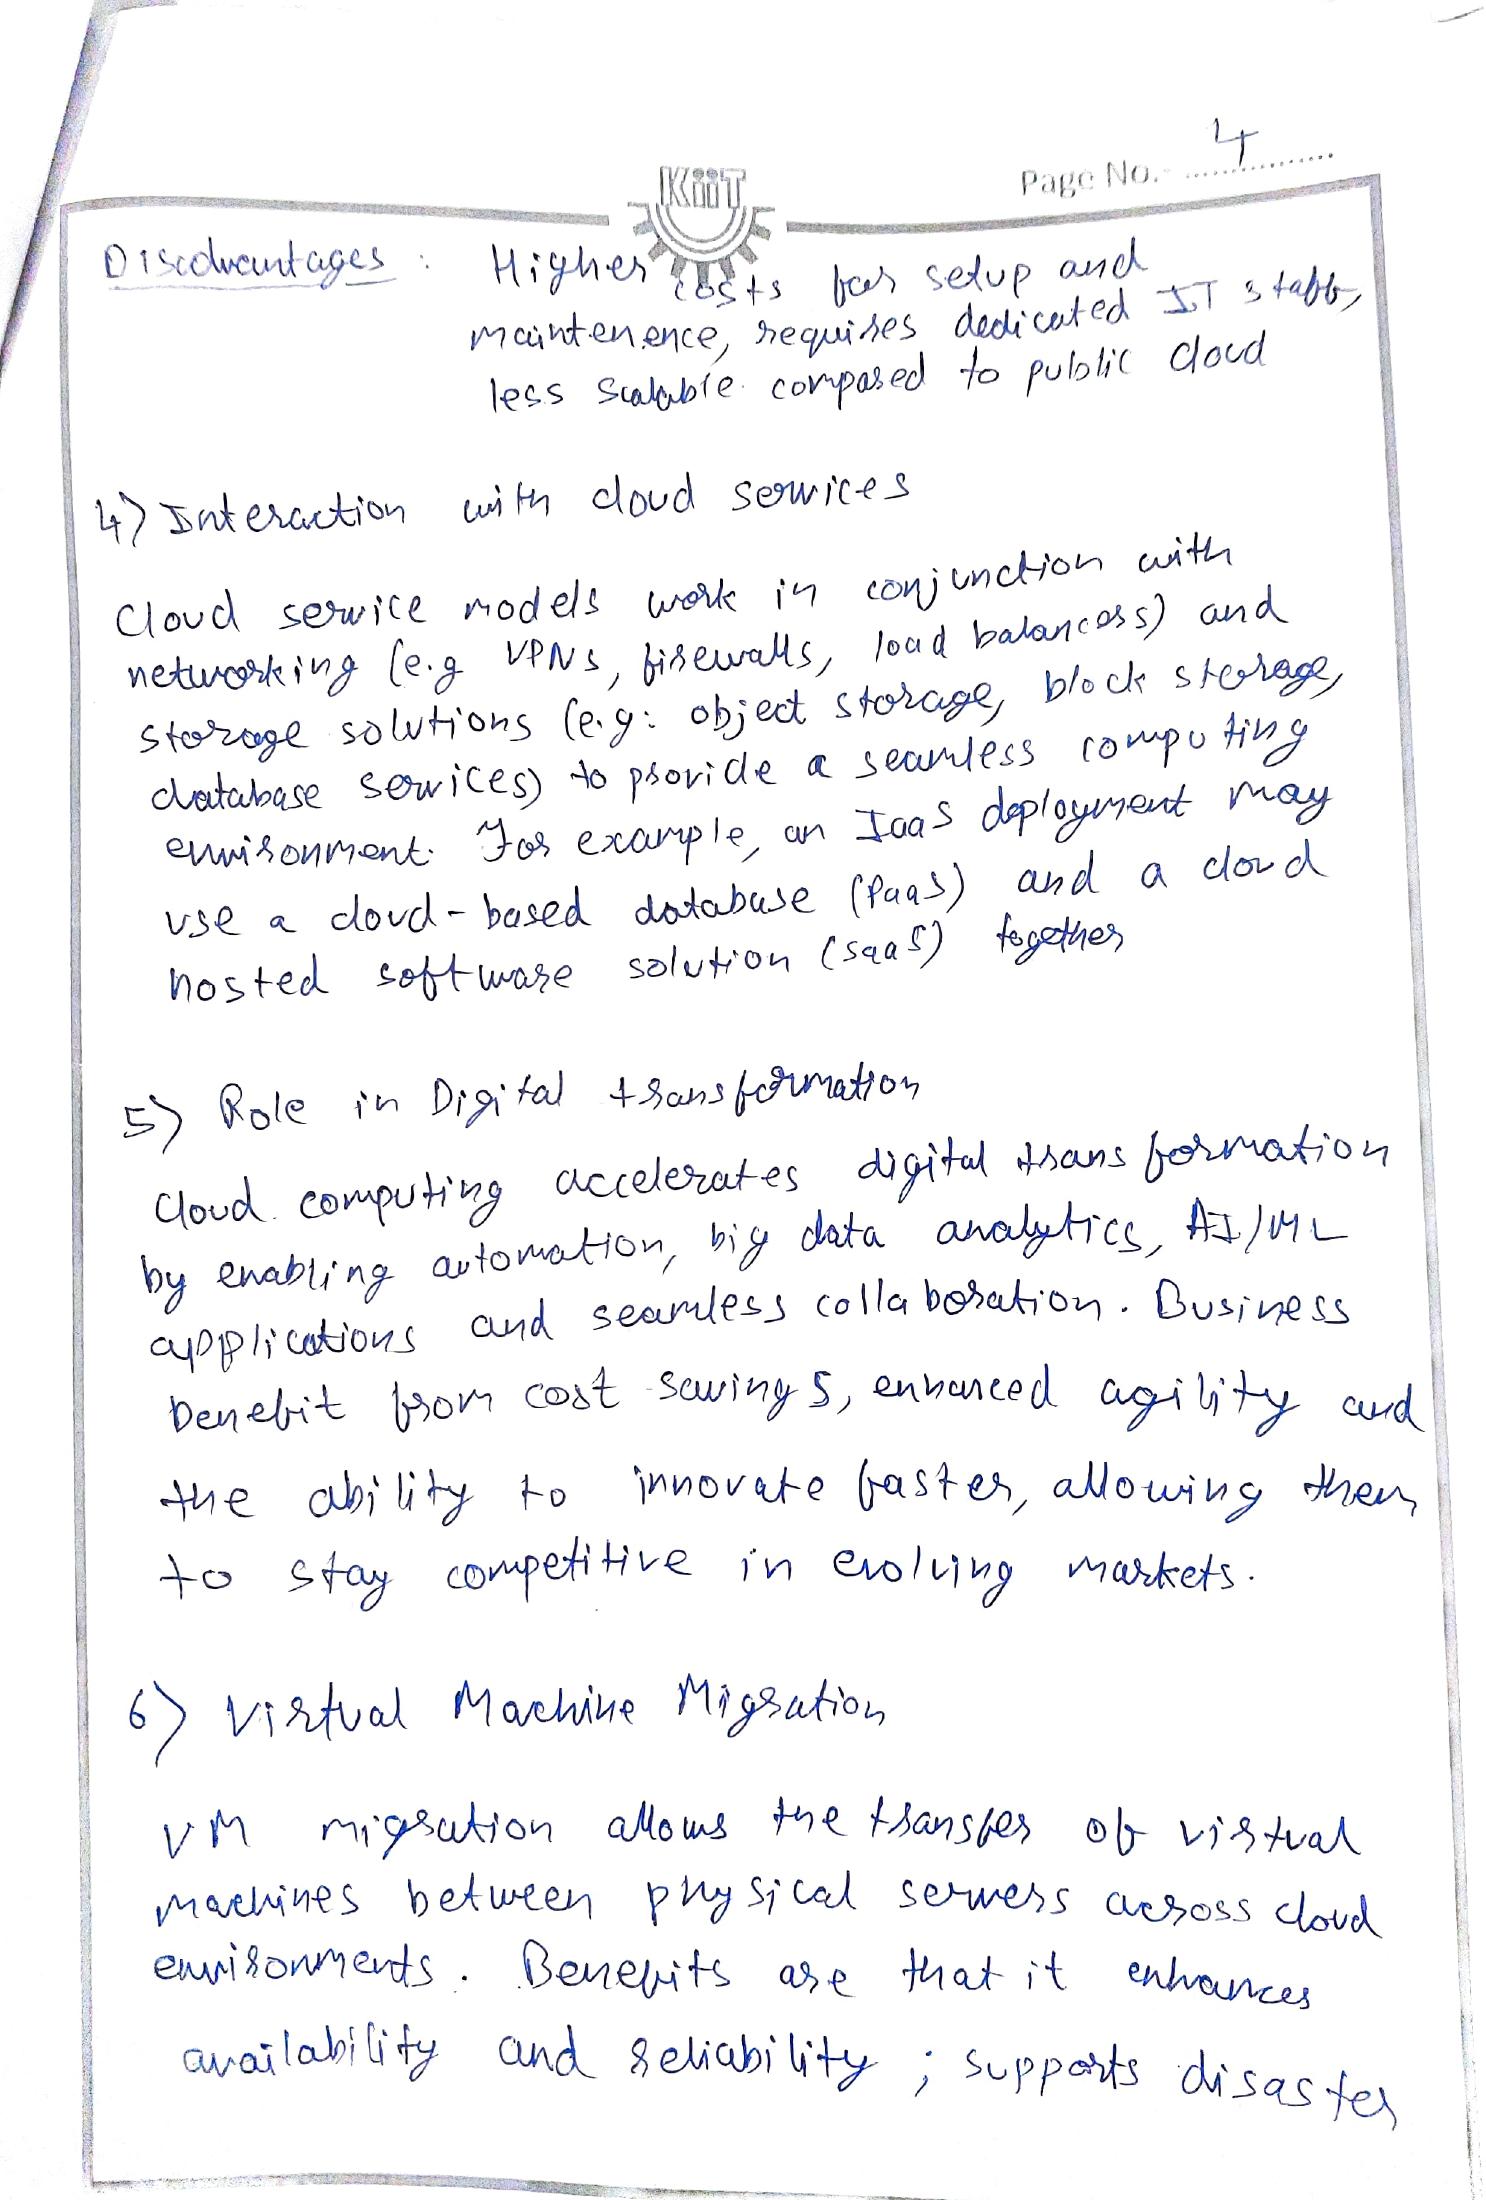 Page No. 4
KiiT
Disadvantages : Higher costs for setup and
maintenence, requires dedicated IT staff,
less scalable compared to public cloud
4) Interaction with cloud services
Cloud service models work in conjunction with
networking (e.g VPNs, firewalls, load balancers) and
storage solutions (e.g: object storage, block storage,
database services) to provide a seamless computing
environment. For example, an IaaS deployment may
use a cloud-based database (PaaS) and a cloud
hosted software solution (SaaS) together
5) Role in Digital transformation
Cloud computing accelerates digital transformation
by enabling automation, big data analytics, AI/ML
applications and seamless collaboration. Business
benefit from cost savings, enhanced agility and
the ability to innovate faster, allowing them
to stay competitive in evolving markets.
6) Virtual Machine Migration
VM migration allows the transfer of virtual
machines between physical servers across cloud
environments. Benefits are that it enhances
availability and reliability ; supports disaster